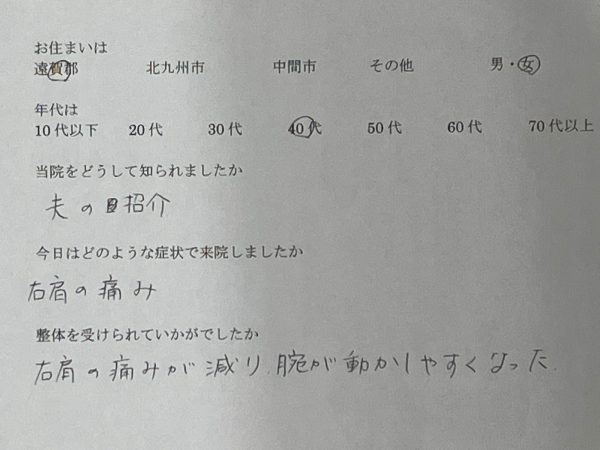 お住まいは
遠賀郡 北九州市 中間市 その他 男・女
年代は
10代以下 20代 30代 40代 50代 60代 70代以上
当院をどうして知られましたか
夫の紹介
今日はどのような症状で来院しましたか
右肩の痛み
整体を受けられていかがでしたか
右肩の痛みが減り、腕が動かしやすくなった.